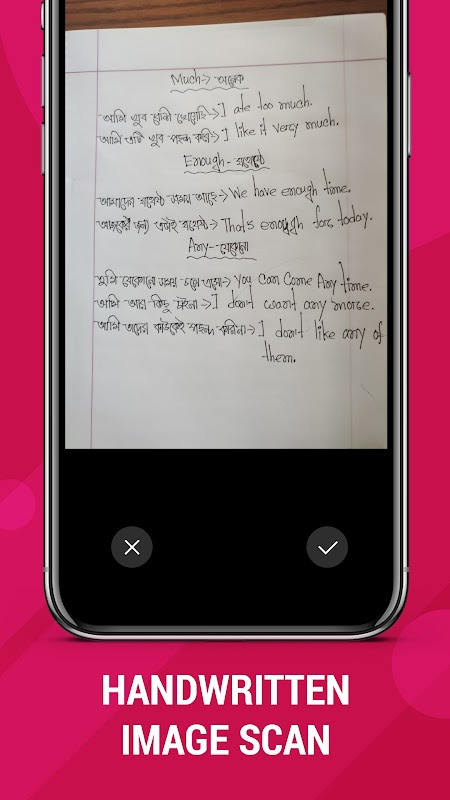 Much-> অনেক
আমি খুব বেশী খেয়েছি-> I ate too much.
আমি এটি খুব পছন্দ করি-> I like it very much.
Enough- যথেষ্ট
আমাদের যথেষ্ট সময় আছে-> We have enough time.
আজকের জন্য এটাই যথেষ্ট-> That's enough for today.
Any--যেকোনো
তুমি যেকোনো সময় চলে এসো-> You Can Come Any time.
আমি আর কিছু চাইনা-> I don't want any more.
আমি তাদের কাউকেই পছন্দ করিনা-> I don't like any of
them.
HANDWRITTEN
IMAGE SCAN